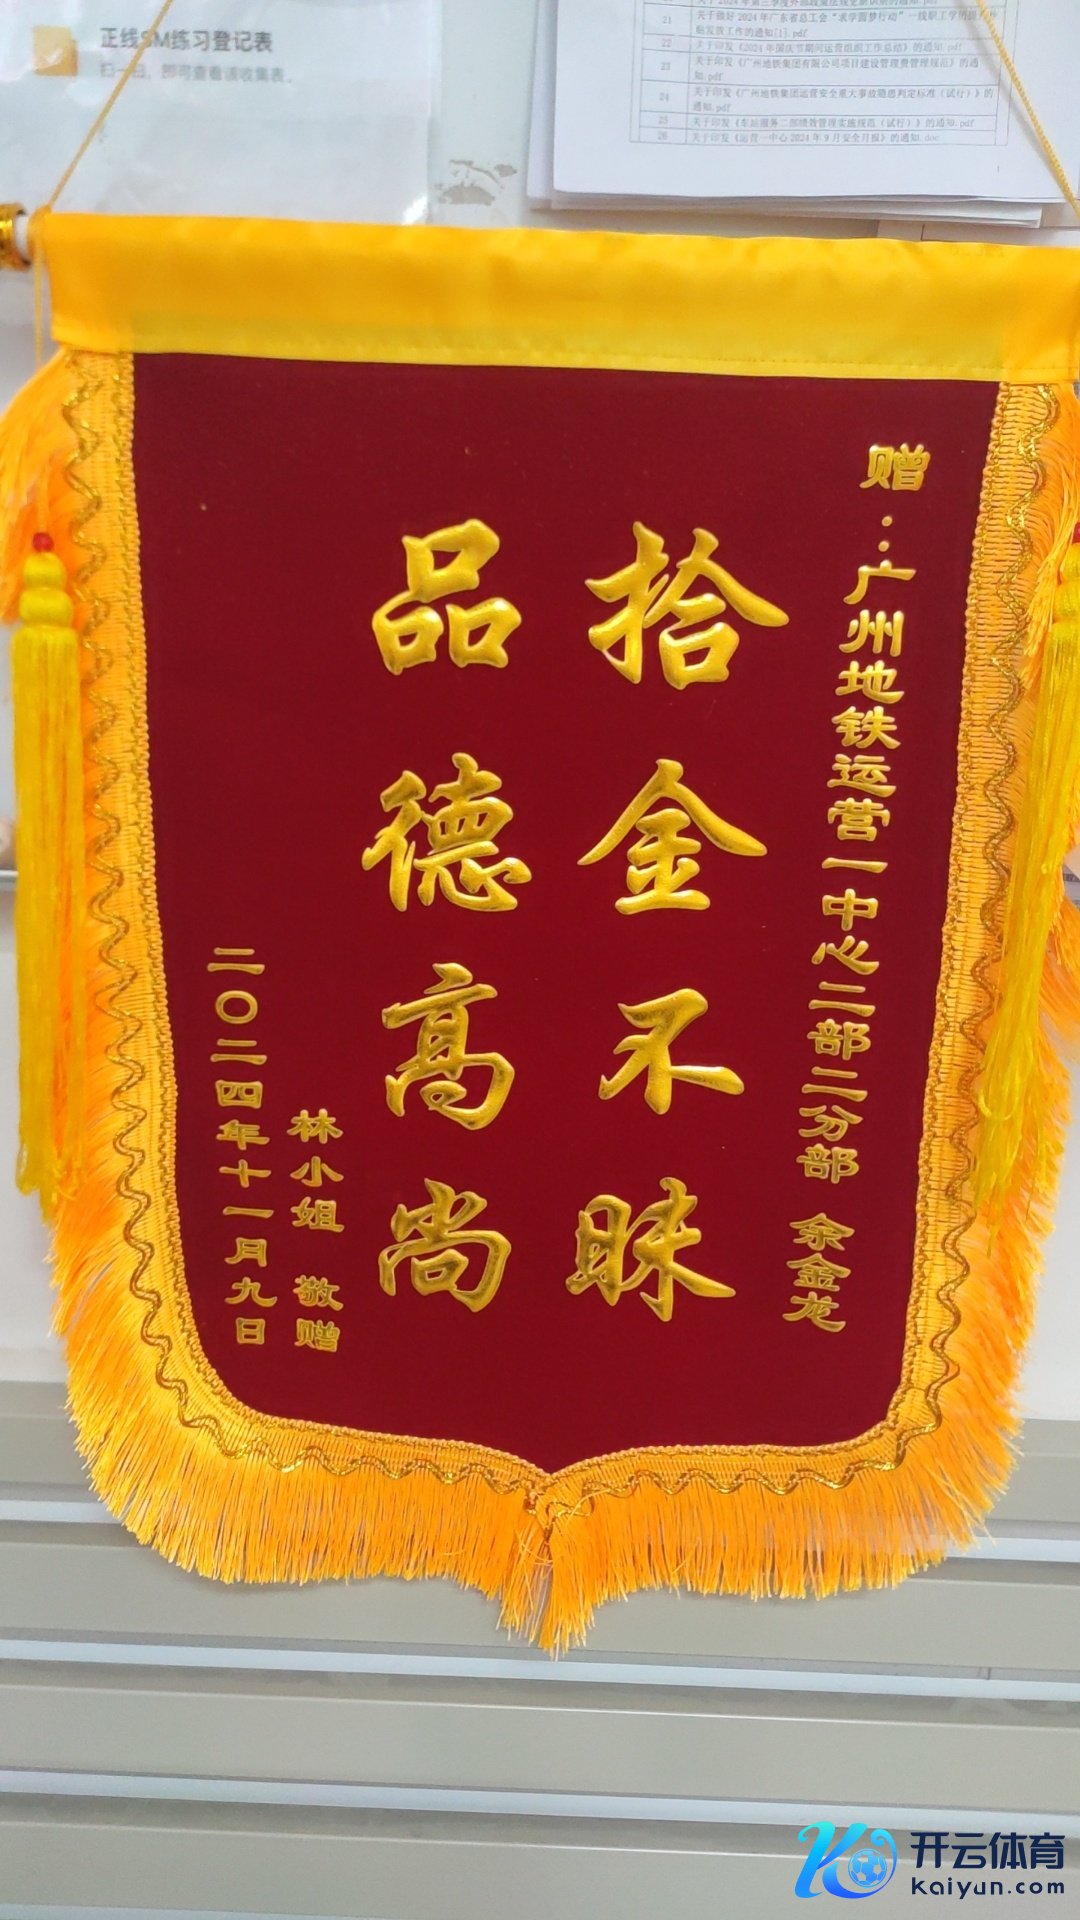 正线SM练习登记表
扫一扫，即可查看该收集表。
21 关于做好2024年广东省总工会“求学圆梦行动”一线职工学历提升补贴发放工作的通知[1].pdf
22 关于印发《2024年国庆节期间运营组织工作总结》的通知.pdf
23 关于印发《广州地铁集团有限公司项目建设管理费管理规范》的通知.pdf
24 关于印发《广州地铁集团运营安全重大事故隐患判定标准（试行）》的通知.pdf
25 关于印发《车站服务二部绩效管理实施规范（试行）》的通知.pdf
26 关于印发《运营一中心2024年9月安全月报》的通知.doc
赠：广州地铁运营一中心二部二分部 余金龙
拾金不昧
品德高尚
林小姐 敬赠
二〇二四年十一月九日
开云体育
kaiyun.com